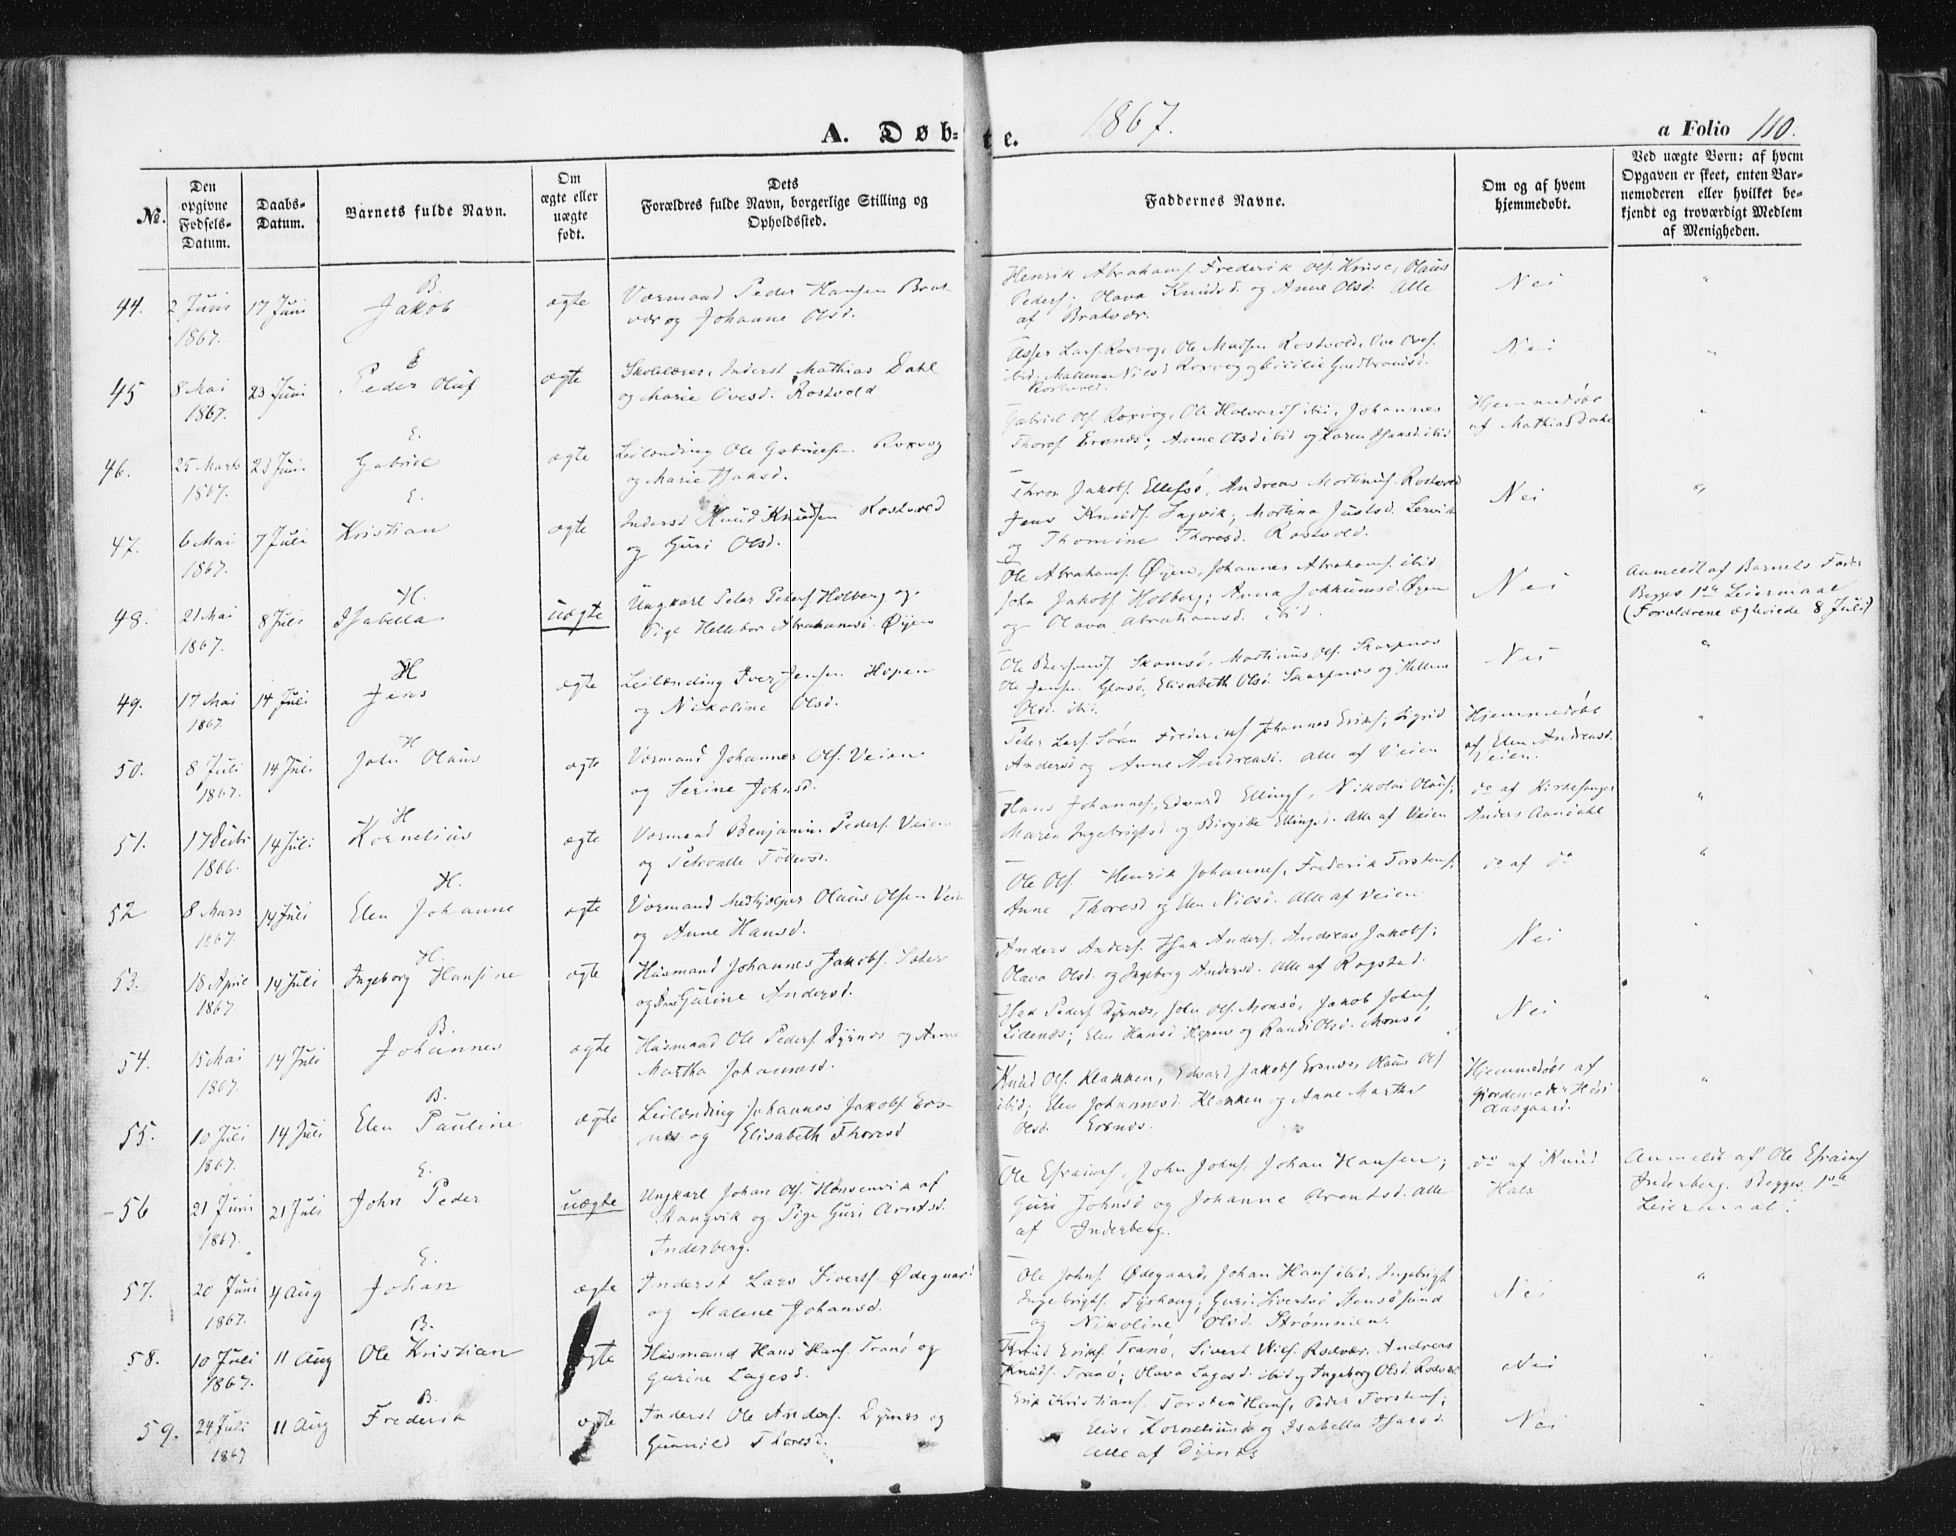 A. Døbte.
1867.
a Folio 110.
No.
Den opgivne Fødsels-Datum.
Daabs-Datum.
Barnets fulde Navn.
Om ægte eller uægte født.
Dets Forældres fulde Navn, borgerlige Stilling og Opholdssted.
Faddernes Navne.
Om og af hvem hjemmedøbt.
Ved uægte Børn: af hvem Opgaven er skeet, enten Barnemoderen eller hvilket bekjendt og troværdigt Medlem af Menigheden.
44. 2 Juni 1867. 17 Juni B. Jakob ægte
Vormand Peder Hansen Brat-
vær og Johanne Olsd.
Henrik Abrahams. Frederik Ols. Kruse, Olaus
Peders; Olava Knudsd. og Anne Olsd. Alle
af Bratvær.
Nei
45 8 Mai 1867. 23 Juni E Peder Oluf ægte
Skolelærer, Inderst Mathias Dahl
og Marie Ovesd. Rostvold
Asser Lars. Roxvog, Ole Rostvold, Ove Oves.
ibid. Nilsd Roxvog og Gudbrandsd.
Rostvold.
Nei
46. 25 Marts 1867. 23 Juni E. Gabriel ægte
Leilænding Ole Gabrielsen Roxvog
og Marie Isaksd.
Gabriel Ols. Roxvog, Ole Halvards. ibid, Johannes
Thores. Ersnæs; Anne Olsd ibid og Karen Isaksd ibid
Hjemmedøbt
af Mathias Dahl
47. 6 Mai 1867. 7 Juli E. Kristian ægte
Inderst Knud Knudsen Rostvold
og Guri Olsd.
Thron Jakobs. Ellefsø, Andreas Martinus. Rostvold
Jens Knuds. Lagvik; Martina Justsd. Lervik
og Thomine Thoresd. Rostvold.
Nei
48. 21 Mai 1867. 8 Juli H. Isabella uægte
Ungkarl Peter Peders. Holberg og
Pige Hellebor Abrahamsd. Øyen
Ole Abrahams. Øyen, Johannes Abrahams. ibid
John Jakobs Holberg; Anna Jokkumsd. Øyen
og Olava Abrahamsd. ibid.
Nei
Anmeldt af Barnets Fader
Begges 1ste Leiermaal
(Forældrene ægteviede 8 Juli)
49. 17 Mai 1867. 14 Juli H Jens ægte
Leilænding Iver Jensen Hopen
og Nikoline Olsd.
Ole Skomsø, Martinus Ols. Skarpnes
Ole Jensen Glasø, Elisabeth Olsd. Skarpnes og Hellena
Olsd. ibid.
Nei
50. 8 Juli 1867. 14 Juli H John Olaus ægte
Vormand Johannes Ols. Veien
og Serine Johnsd.
Peter Lars. Sören Frederiks Johannes Eriks; Sigrid
Andersd og Anne Andreasd. Alle af Veien
Hjemmedøbt
af Elen Andreasd.
Veien.
51. 17 Decbr 1866. 14 Juli H Kornelius ægte
Vormand Benjamin Peders. Veien
og Petronelle Tollevsd.
Hans Johannes., Edvard Ellings, Nikolai Olaus;
Maren Ingebrigtsd og Birgitte Ellingsd. Alle af Veien
do af Kirkesanger
Anders Aandahl
52 8 Mars 1867. 14 Juli H. Elen Johanne ægte
Vormand Medhjælper Olaus Olsen Veien
og Anne Hansd.
Ole Ols. Henrik Johannes, Frederik Torstens;
Anne Thoresd og Elen Nilsd. Alle af Veien
do af do
53. 18 April 1867. 14 Juli H. Ingeborg Hansine ægte
Husmand Johannes Jakobs. Sæter
og Anne Gurine Andersd.
Anders Anders. Isak Anders, Andreas Jakobs;
Olava Olsd. og Ingeborg Andersd. Alle af Rogstad.
Nei
54. 15 Mai 1867. 14 Juli B. Johannes ægte
Husmand Ole Peders. Dyrnes og Anne
Martha Johannesd.
Isak Peders. Dyrnes, John Ols. Monsø, Jakob Johns
Lidenes; Elen Hansd Hopen og Randi Olsd. Monsø
Nei
55. 10 Juli 1867. 14 Juli B. Elen Pauline ægte
Leilænding Johannes Jakobs. Ers-
næs og Elisabeth Thoresd
Knud Ols. Klakken, Edvard Jakobs Ersnæs, Olaus Ols
ibid; Elen Johannesd. Klakken og Anne Martha
Olsd. Ersnæs.
Hjemmedøbt af
Gjordemoder
Aasgaard.
56 21 Juni 1867. 21 Juli E. John Peder uægte
Ungkarl Johan Ols. Hønsenvik af
Stangvik og Pige Guri Arntsd.
Inderberg.
Ole Efraims, John Johns, Johan Hansen;
Guri Johnsd og Johanne Arentsd. Alle
af Inderberg.
do af Knud
Hals
Anmeldt af Ole Efraims
Inderberg. Begges 1ste
Leiermaal.
57. 20 Juni 1867. 4 Aug E. Johan ægte
Inderst Lars Siverts. Ødegaard
og Malene Johansd.
Ole Johns. Ødegaard, Johan Hans ibid, Ingebrigt
Ingebrigts. Tyshaug; Guri Sivertsd Stensøsund
og Nikoline Olsd. Strømmen.
Nei
58. 10 Juli 1867. 11 Aug B. Ole Kristian ægte
Husmand Hans Hans Tranø og
Gurine Lagesd.
Knud Eriks. Tranø, Sivert Nils. Rodvær, Andreas
Knuds. Tranø; Olava Lagesd. ibid og Ingeborg Olsd. Rodvær
Nei
59. 24 Juli 1867 11 Aug B. Frederik ægte
Inderst Ole Anders. Dyrnes og
Gunnild Thoresd.
Erik Kristians, Torsten Hans, Peder Torstens;
Elise Korneliusd og Isabella Isaksd.
Alle af Dyrnes
Nei